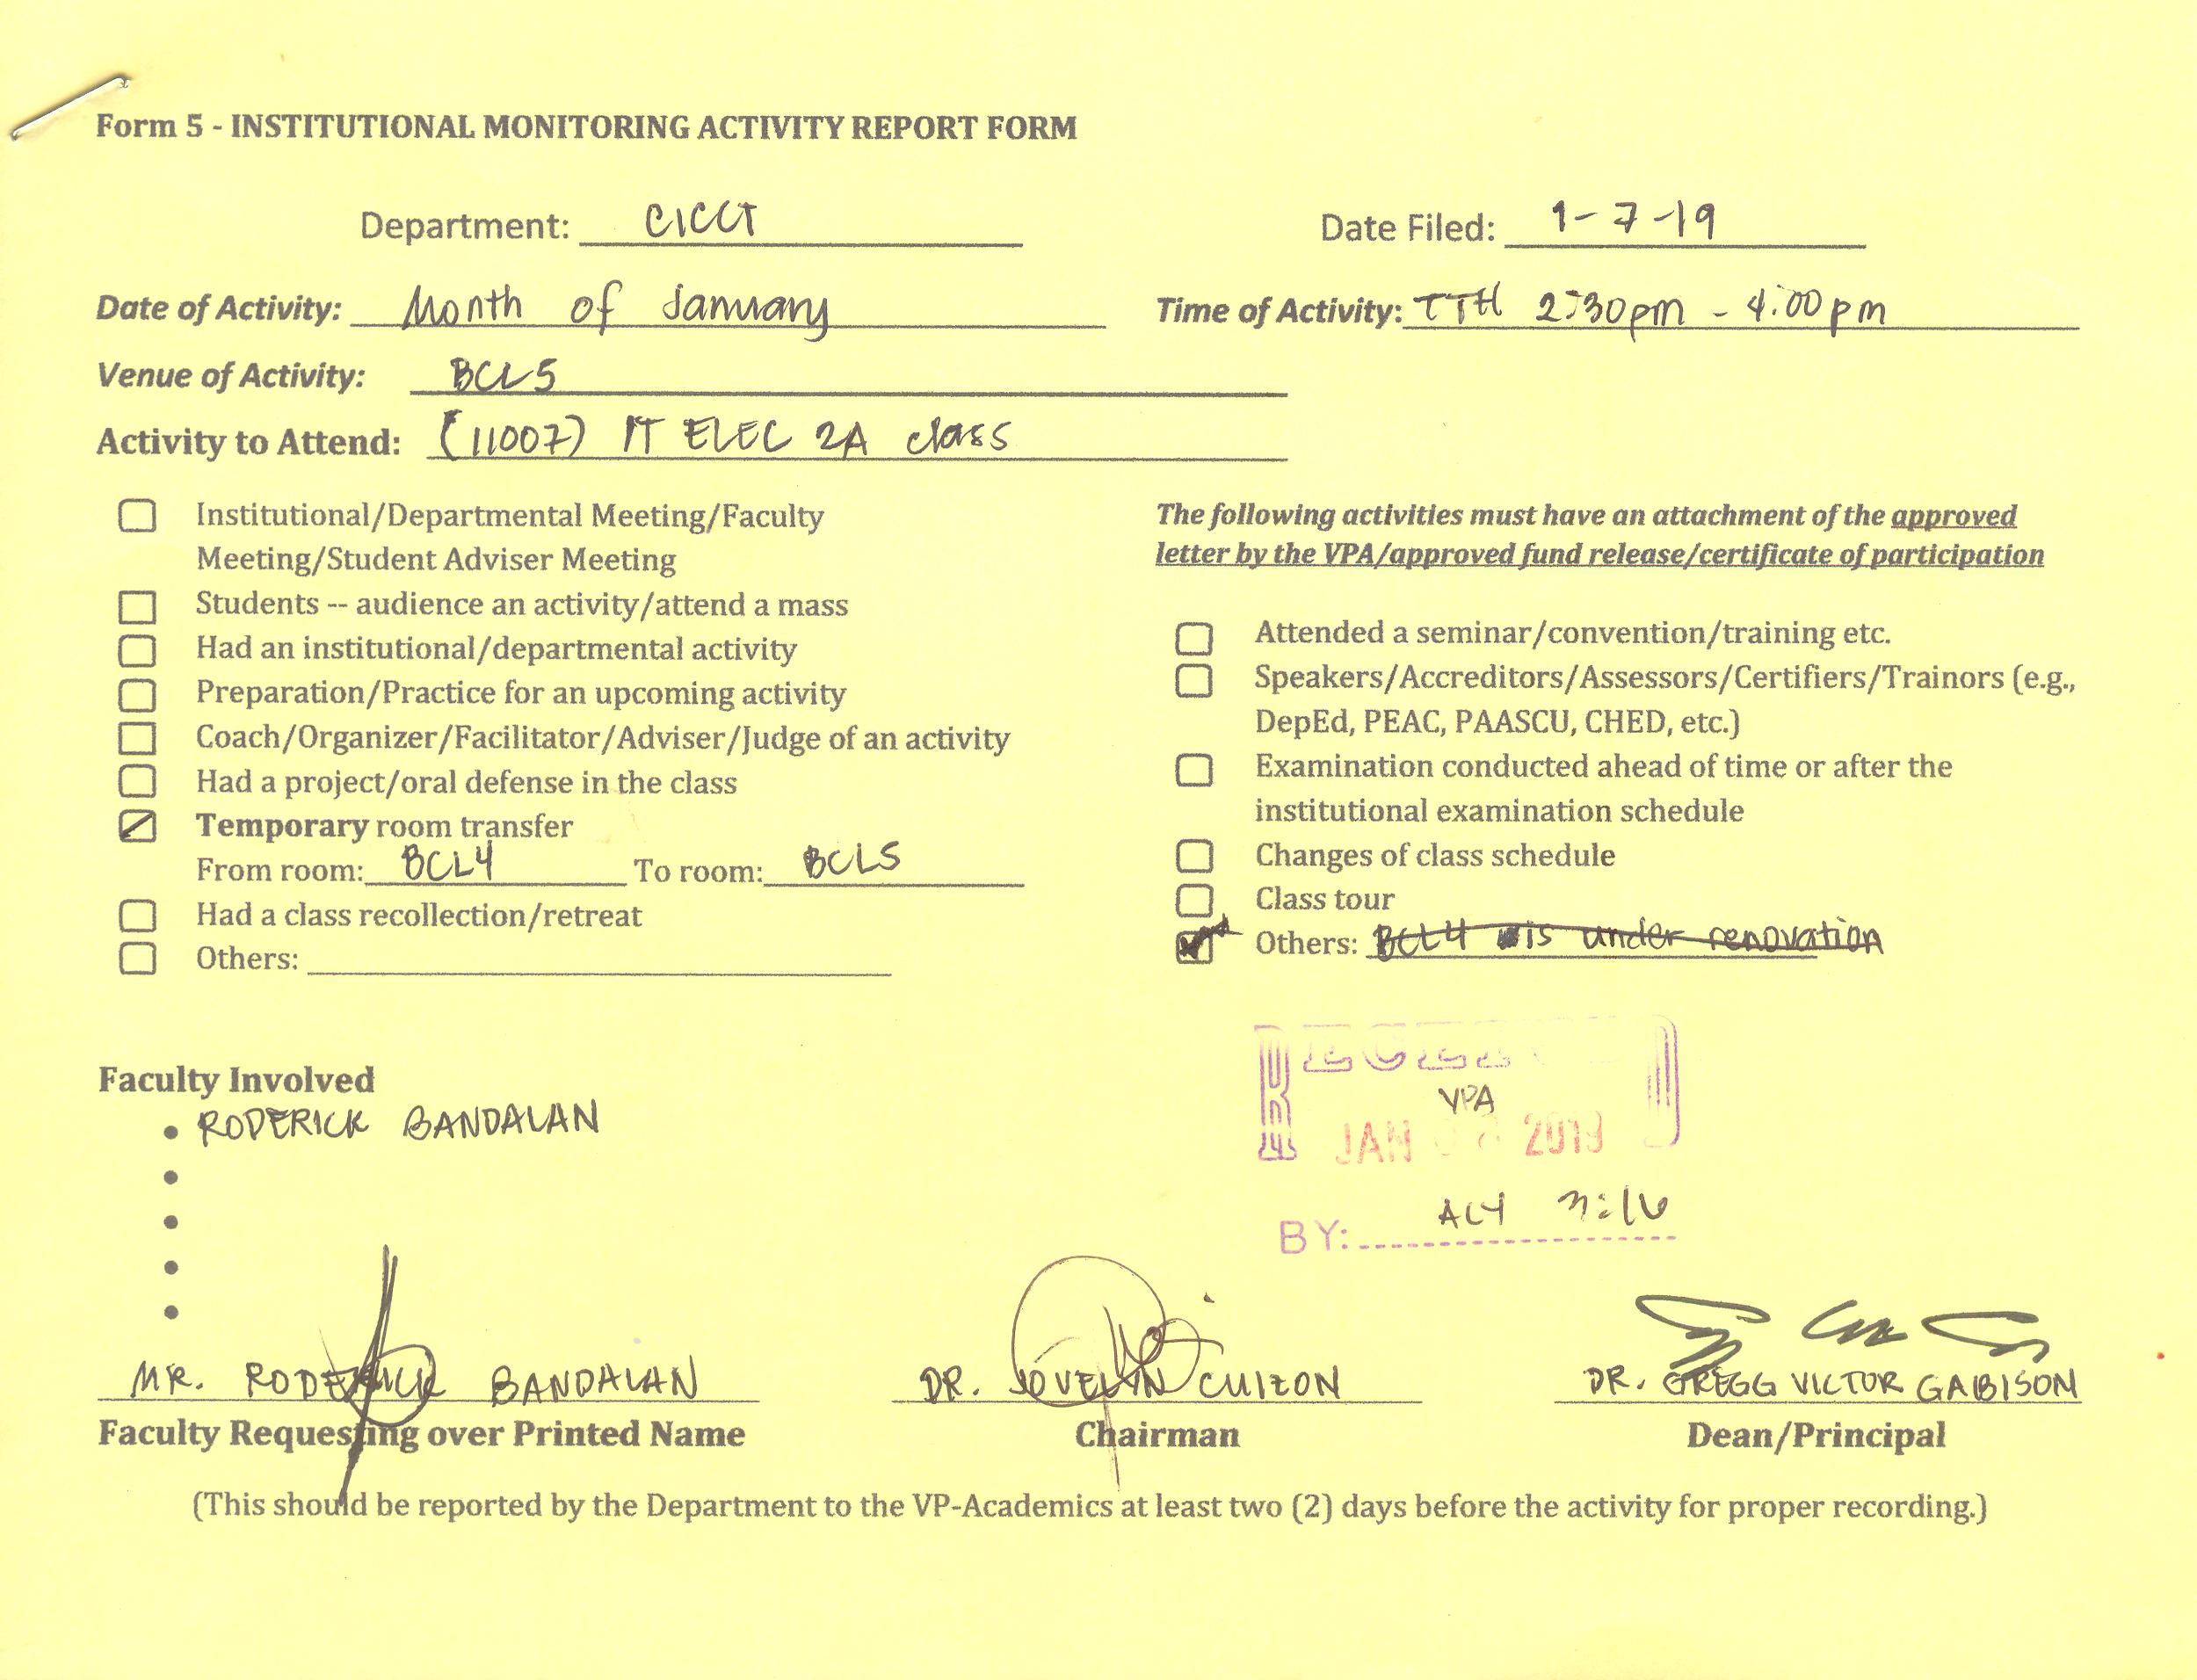 Form 5 - INSTITUTIONAL MONITORING ACTIVITY REPORT FORM
Department: CICCT
Date Filed: 1-7-19
Date of Activity: Month of January
Time of Activity: TTH 2:30pm - 4:00pm
Venue of Activity: BCL5
Activity to Attend: (11007) IT ELEC 2A class
Institutional/Departmental Meeting/Faculty
Meeting/Student Adviser Meeting
Students -- audience an activity/attend a mass
Had an institutional/departmental activity
Preparation/Practice for an upcoming activity
Coach/Organizer/Facilitator/Adviser/Judge of an activity
Had a project/oral defense in the class
Temporary room transfer
From room: BCL4 To room: BCL5
Had a class recollection/retreat
Others:
The following activities must have an attachment of the approved
letter by the VPA/approved fund release/certificate of participation
Attended a seminar/convention/training etc.
Speakers/Accreditors/Assessors/Certifiers/Trainors (e.g.,
DepEd, PEAC, PAASCU, CHED, etc.)
Examination conducted ahead of time or after the
institutional examination schedule
Changes of class schedule
Class tour
Others: BCL4 is under renovation
Faculty Involved
• RODERICK BANDALAN
•
•
•
•
VPA
JAN 2019
BY:
MR. RODERICK BANDALAN
Faculty Requesting over Printed Name
DR. JOVELYN CUIZON
Chairman
DR. GREGG VICTOR GABISON
Dean/Principal
(This should be reported by the Department to the VP-Academics at least two (2) days before the activity for proper recording.)